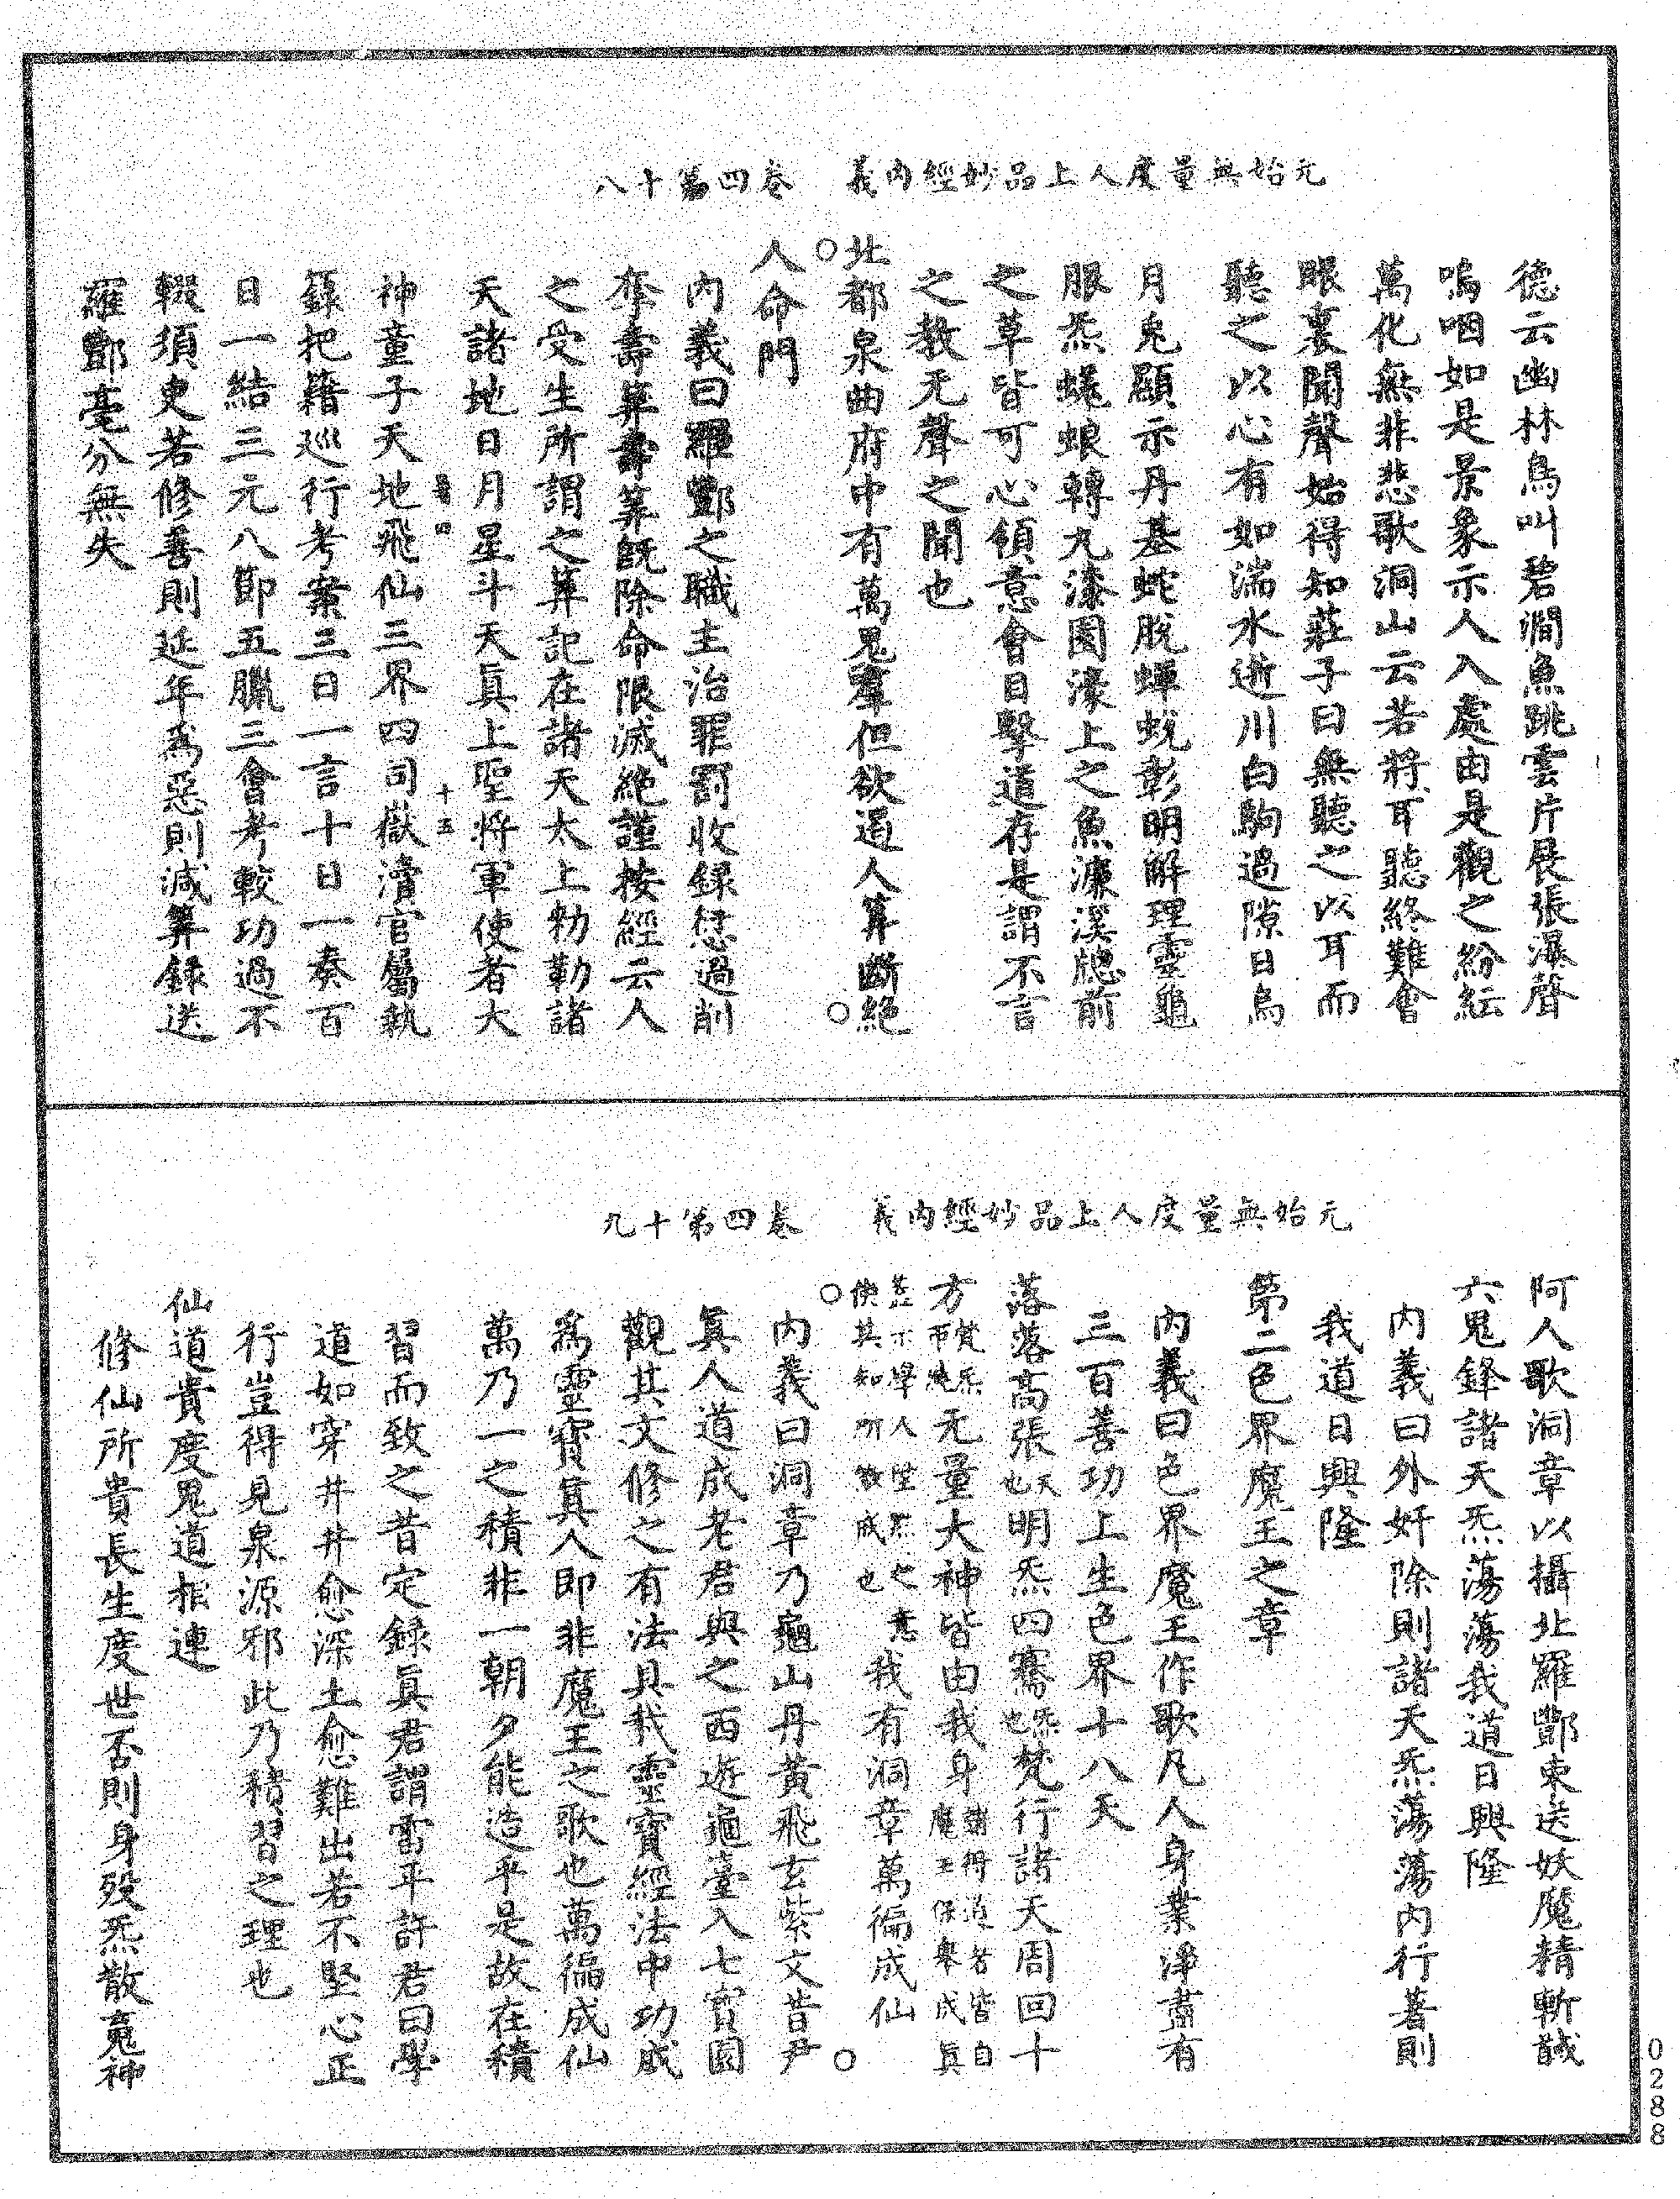 元始無量度人上品妙經內義　卷四第十八
德云幽林鳥叫碧澗魚跳雲片展張瀑聲
嗚咽如是景象示人入處由是觀之紛紜
萬化無非悲歌洞山云若將耳聽終難會
眼裏聞聲始得知莊子曰無聽之以耳而
聽之以心有如湍水逝川白駒過隙日烏
月兎顯示丹基蛇脫蟬蛻彰明解理靈龜
服炁蜣蜋轉丸漆園濠上之魚濂溪牕前
之草皆可心領意會目擊道存是謂不言
之教无聲之聞也
○北都泉曲府中有萬鬼羣但欲遏人算斷絕○
人命門
內義曰羅酆之職主治罪罰收録愆過削
奪壽算壽算旣除命限滅絕謹按經云人
之受生所謂之算記在諸天太上勑勒諸
天諸地日月星斗天眞上聖將軍使者大
神童子天地飛仙三界四司嶽瀆官屬執
籙把籍巡行考案三日一言十日一奏百
日一結三元八節五臘三會考較功過不
輟須臾若修善則延年爲惡則減算録送
羅酆毫分無失
十五
元始無量度人上品妙經內義　卷四第十九
阿人歌洞章以攝北羅酆束送妖魔精斬馘
六鬼鋒諸天炁蕩蕩我道日興隆
內義曰外奸除則諸天炁蕩蕩內行著則
我道日興隆
第二色界魔王之章
內義曰色界魔王作歌凡人身業淨肅有
三百善功上生色界十八天
落落高張天也明炁四騫炁也梵行諸天周回十
方梵炁帀繞无量大神皆由我身諸得道者皆自魔王保舉成眞
○蓋示舉人陞眞之意使其知所敬成也我有洞章萬徧成仙○
內義曰洞章乃龜山丹黃飛玄紫文昔尹
眞人道成老君與之西遊龜臺入七寶園
觀其文修之有法具我靈寶經法中功成
爲靈寶眞人即非魔王之歌也萬徧成仙
萬乃一之積非一朝夕能造乎是故在積
習而致之昔定録眞君謂雷平許君曰學
道如穿井井愈深土愈難出若不堅心正
行豈得見泉源邪此乃積習之理也
仙道貴度鬼道相連
修仙所貴長生度世否則身歿炁散䰟神
0288